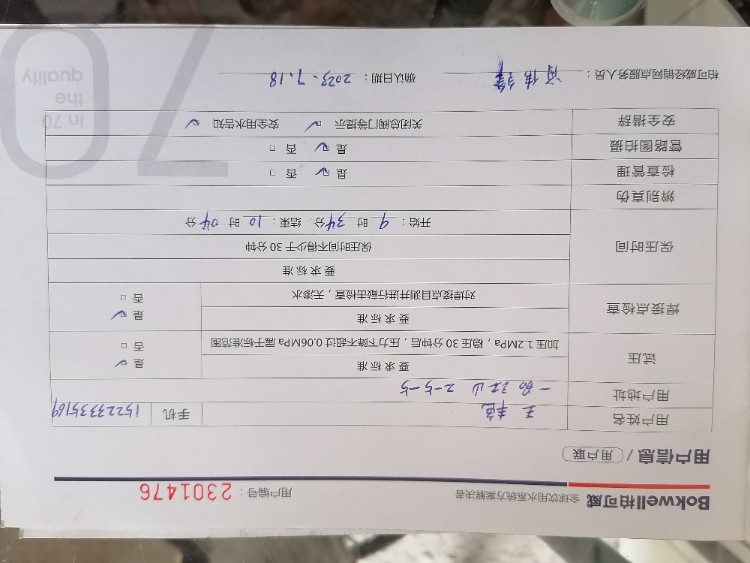 Bokwell柏可威 全球饮用水系统方案解决者 用户编号：2301476
用户信息 / 用户联
用户姓名 王 手机 15223335169
用户地址 一品江山 2-5-5
试压 要求标准 是 ☑
加压1.2MPa，稳压30分钟后，压力下降不超过0.06MPa 属于标准范围 否 □
焊接点检查 要求标准 是 ☑
对焊接点目测并进行敲击检查，无渗水 否 □
保压时间 要求标准
保压时间不得少于30分钟
开始：9时34分 结束：10时04分
辨别真伪
检查管理 是 ☑ 否 □
管路图拍摄 是 ☑ 否 □
安全措辞 关闭总阀门等提示 ☑ 安全用水告知 ☑
柏可威经销网点服务人员： 确认日期：2023.7.18
70
in 70
the
quality